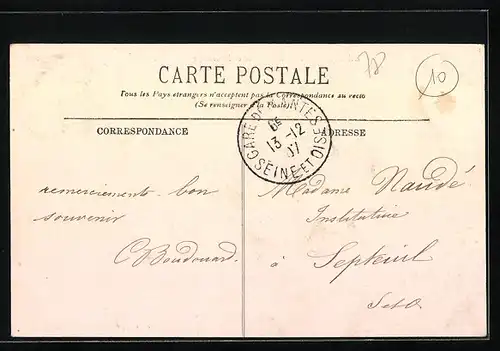 78
10
CARTE POSTALE
Tous les Pays étrangers n'acceptent pas la Correspondance au recto
(Se renseigner à la Poste)
CORRESPONDANCE
ADRESSE
GARE DE MANTES
6E
13 -12
07
SEINE-ET-OISE
remerciements. bon
souvenir
C Boudouard.
Madame Naudé
Institutrice
à Septeuil
S et O